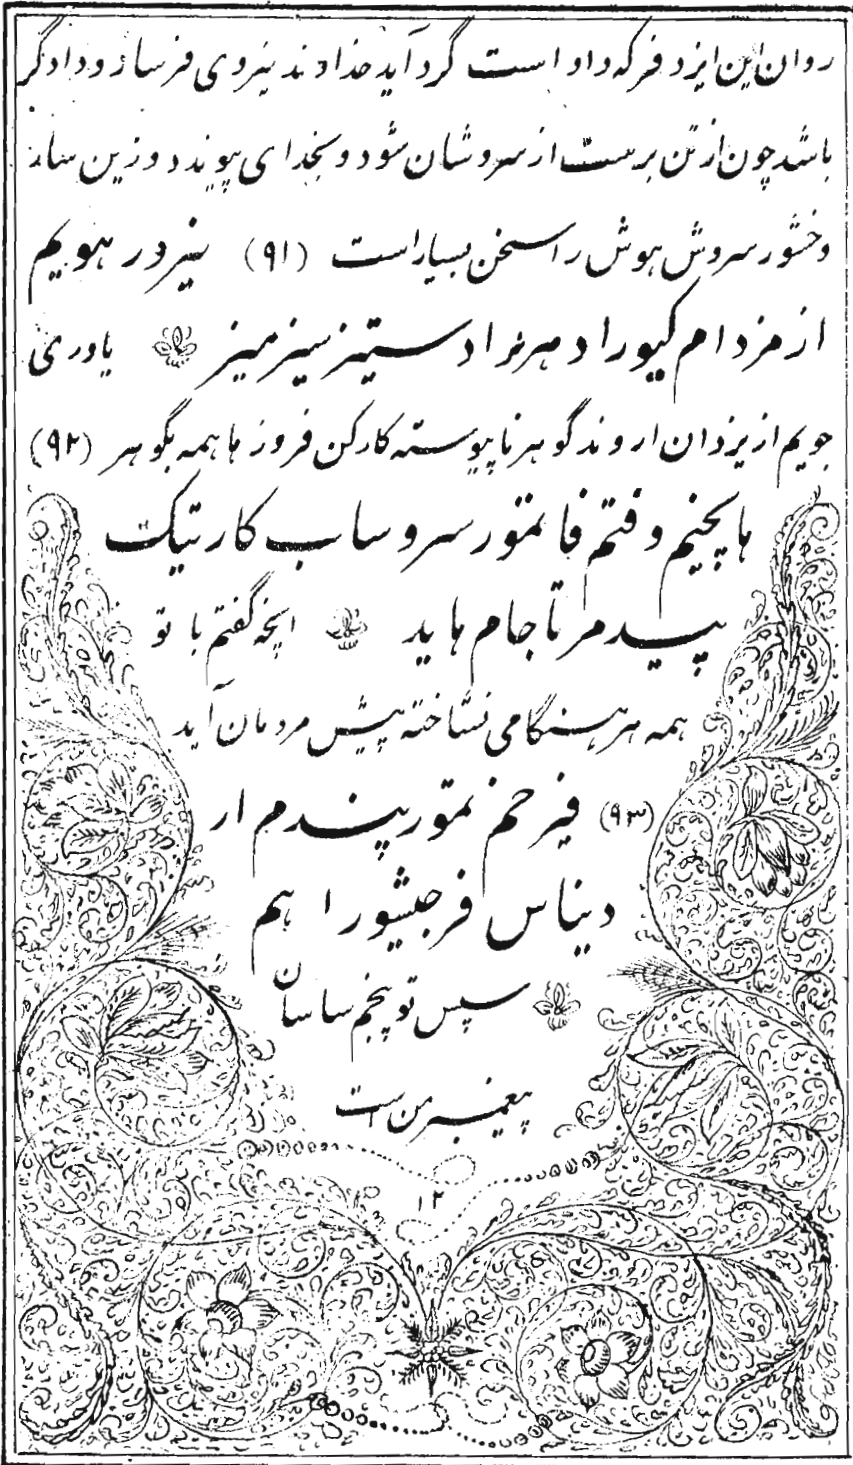 روان این ایزد فر که داد است گرد آید خداوند نیروی فرساز و دادگر
باشد چون از تن برست از سروشان شود و بخدای پیوندد و زین سان
وخشور سروش هوش را سخن بسیار است (۹۱) نیز در هویم
از مزدام کیوراد هرنراد ستیز سیز میز یاوری
جویم از یزدان اروند گوهر ناپیوسته کارکن فروز ها همه بگوهر (۹۲)
هاپخیم و فتم فا نمتور سروساب کارتیک
پیدمرتاجام هاید اینچه گفتم با تو
همه هر هنگامی نشاخته پیش مردمان آید
(۹۳) فیرخم نمتور پندم ار
دیناس فرجیشور ا هم
سپس تو پنجم ساسان
پیغمبر من است
۱۲